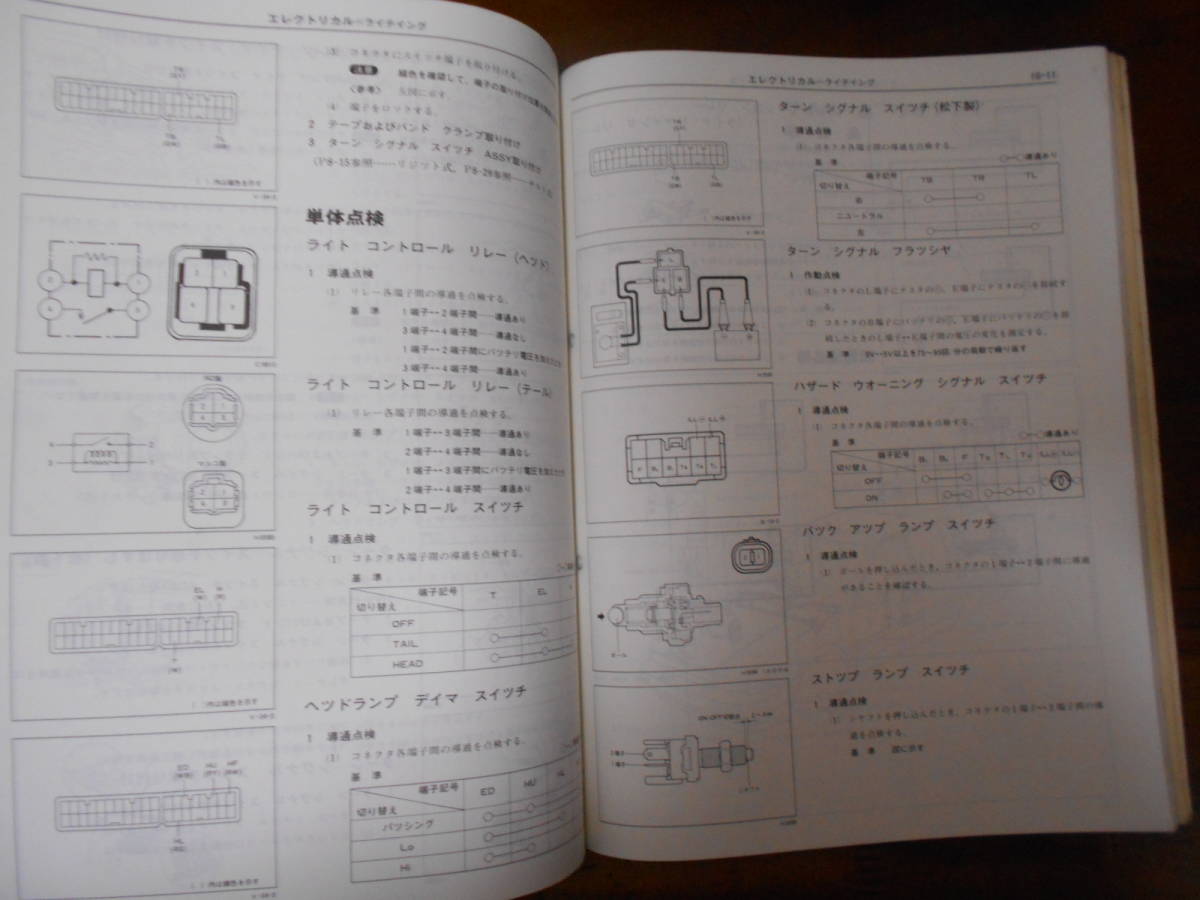 エレクトリカルーライテイング
(3) コネクタにスイッチ端子を取り付ける。
注意 線色を確認して、端子の取り付け位置
〈参考〉 左図に示す
(4) 端子をロックする。
2 テープおよびバンド クランプ取り付け
3 ターン シグナル スイツチ ASSY取り付け
(P8-15参照……リジット式、P8-28参照
( )内は線色を示す
単体点検
ライト コントロール リレー(ヘツド)
1 導通点検
(1) リレー各端子間の導通を点検する。
基 準 1端子↔2端子間……導通あり
3端子↔4端子間……導通なし
1端子↔2端子間にバツテリ電圧を加えたとき
3端子↔4端子間……導通あり
ライト コントロール リレー(テール)
(1) リレー各端子間の導通を点検する。
基 準 1端子↔3端子間……導通あり
2端子↔4端子間……導通なし
1端子↔3端子間にバツテリ電圧を加えたとき
2端子↔4端子間……導通あり
ライト コントロール スイツチ
1 導通点検
(1) コネクタ各端子間の導通を点検する。
基 準
端子記号 T EL
切り替え
OFF
TAIL
HEAD
EL H
T
( )内は線色を示す
ヘツドランプ デイマ スイツチ
1 導通点検
(1) コネクタ各端子間の導通を点検する。
基 準
端子記号 ED HU HL
切り替え
パツシング
Lo
Hi
ED HU HF
HL
( )内は線色を示す
エレクトリカルーライテイング
10-11
ターン シグナル スイツチ(松下製)
1 導通点検
(1) コネクタ各端子間の導通を点検する。
基 準 導通あり
端子記号 TB TR TL
切り替え
右
ニユートラル
左
ターン シグナル フラツシヤ
1 作動点検
(1) コネクタのL端子にテスタの⊕、E端子にテスタの⊖を接続す
る。
(2) コネクタのB端子にバツテリの⊕、E端子にバツテリの⊖を接
続したときのL端子↔E端子間の電圧の変化を測定する。
ハザード ウオーニング シグナル スイツチ
1 導通点検
(1) コネクタ各端子間の導通を点検する。
基 準 導通あり
端子記号
切り替え
OFF
ON
バツク アツプ ランプ スイツチ
1 導通点検
(1) ボールを押し込んだとき、コネクタの1端子↔2端子間に導通
があることを確認する。
ボール
ストツプ ランプ スイツチ
1 導通点検
(1) シヤフトを押し込んだとき、コネクタの1端子↔2端子間の導
通を点検する。
基 準 図に示す